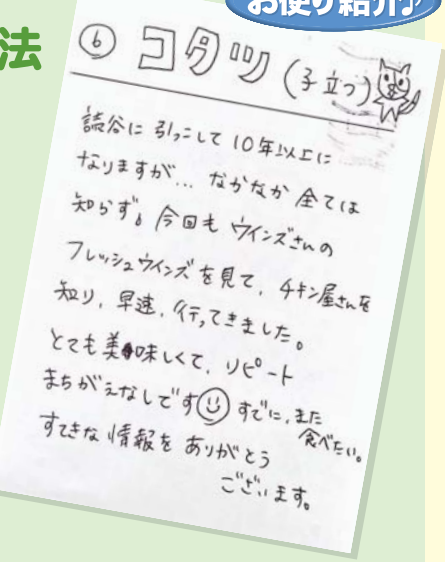 お便り紹介♪
法
⑥ コタツ(子立つ)
読谷に 引っこして 10年以上に
なりますが... なかなか 全ては
知らず。今回も ウインズさんの
フレッシュウインズを見て、チキン屋さんを
知り、早速、行ってきました。
とても美味しくて、リピート
まちがえなしです☺ すでに、また
食べたい。
すてきな情報を ありがとう
ございます。